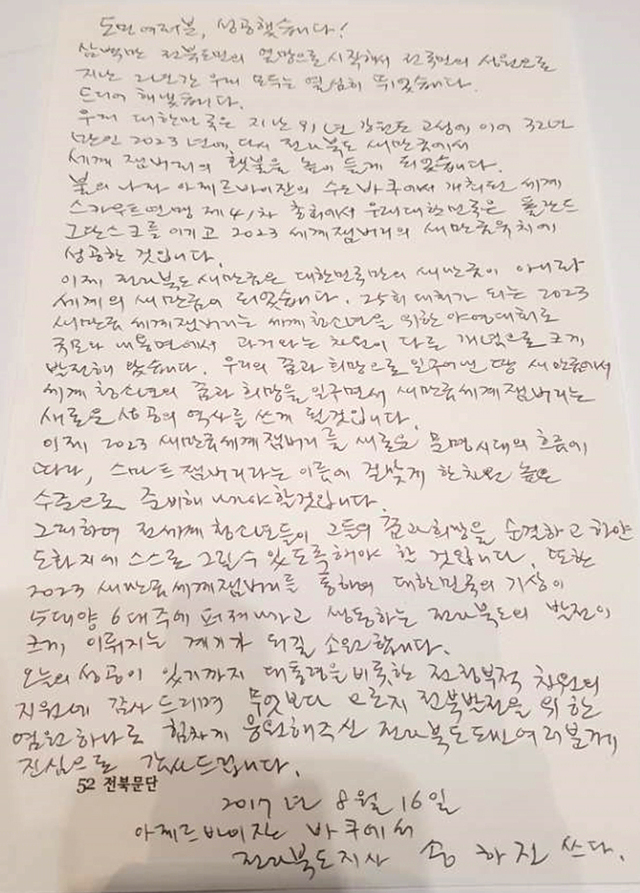 도민 여러분, 성공했습니다!
삼백만 전북도민의 열망으로 시작해서 전국민의 성원으로
지난 2년간 우리 모두는 열심히 뛰었습니다.
드디어 해냈습니다.
우리 대한민국은 지난 91년 강원도 고성에 이어 32년
만인 2023년에, 다시 전라북도 새만금에서
세계 잼버리의 횃불을 높이 들게 되었습니다.
불의 나라 아제르바이잔의 수도 바쿠에서 개최된 세계
스카우트연맹 제41차 총회에서 우리 대한민국은 폴란드
그단스크를 이기고 2023 세계잼버리의 새만금 유치에
성공한 것입니다.
이제 전라북도 새만금은 대한민국만의 새만금이 아니라
세계의 새만금이 되었습니다. 25회 대회가 되는 2023
새만금 세계잼버리는 세계청소년을 위한 야영대회로
규모나 내용면에서 과거와는 차원이 다른 개념으로 크게
발전해 왔습니다. 우리의 꿈과 희망으로 일구어낸 땅 새만금에서
세계 청소년의 꿈과 희망을 일구면서 새만금세계잼버리는
새로운 성공의 역사를 쓰게 될것입니다.
이제 2023 새만금세계잼버리를 새로운 문명시대의 흐름에
따라, 스마트잼버리라는 이름에 걸맞게 한차원 높은
수준으로 준비해 나가야 할것입니다.
그리하여 전세계 청소년들이 그들의 꿈과희망을 순결하고 하얀
도화지에 스스로 그릴 수 있도록 해야 할 것입니다. 또한
2023 새만금세계잼버리를 통하여 대한민국의 기상이
5대양 6대주에 퍼져나가고 생동하는 전라북도의 발전이
크게 이뤄지는 계기가 되길 소원합니다.
오늘의 성공이 있기까지 대통령을 비롯한 전정부적 차원의
지원에 감사드리며 무엇보다 오로지 전북발전을 위한
염원 하나로 힘차게 응원해주신 전라북도 도민여러분께
진심으로 감사드립니다.
52 전북문단
2017년 8월 16일
아제르바이잔 바쿠에서
전라북도지사 송하진 쓰다.